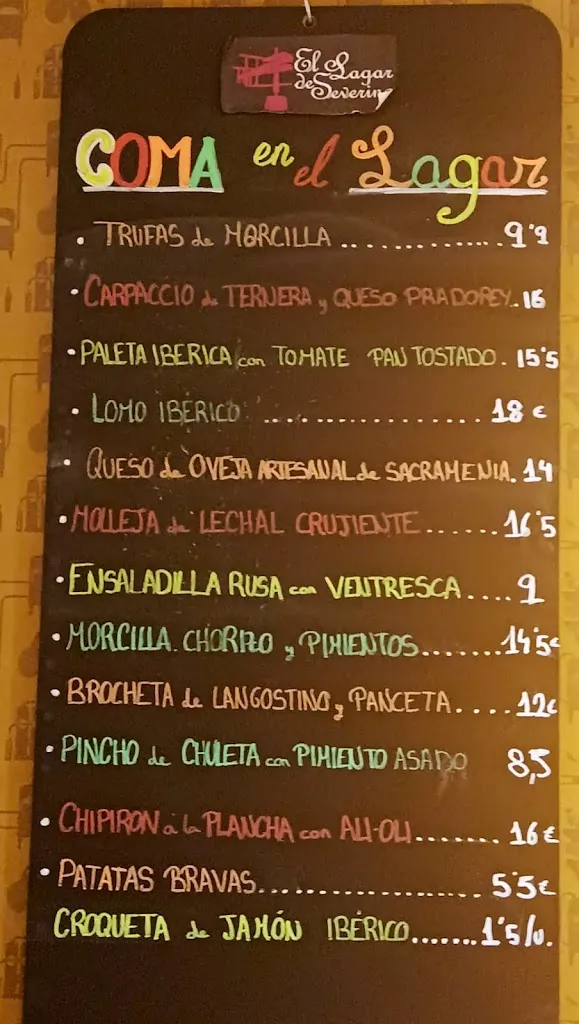 El Lagar
de Severin
COMA en el Lagar
. TRUFAS de MORCILLA ............. 9'9
• CARPACCIO de TERNERA y QUESO PRADOREY.. 16
• PALETA IBERICA con TOMATE PAN TOSTADO. 15'5
• LOMO IBÉRICO ................ 18 €
• QUESO de OVEJA ARTESANAL de SACRAMENIA. 14
• MOLLEJA de LECHAL CRUJIENTE...... 16'5
• ENSALADILLA RUSA con VENTRESCA.... 9
• MORCILLA. CHORIZO y PIMIENTOS....... 14'5€
• BROCHETA de LANGOSTINO y PANCETA.... 12€
• PINCHO de CHULETA con PIMIENTO ASADO 8,5
• CHIPIRON a la PLANCHA con ALI-OLI....... 16 €
• PATATAS BRAVAS................ 5'5€
CROQUETA de JAMÓN IBÉRICO....... 1'5/u.